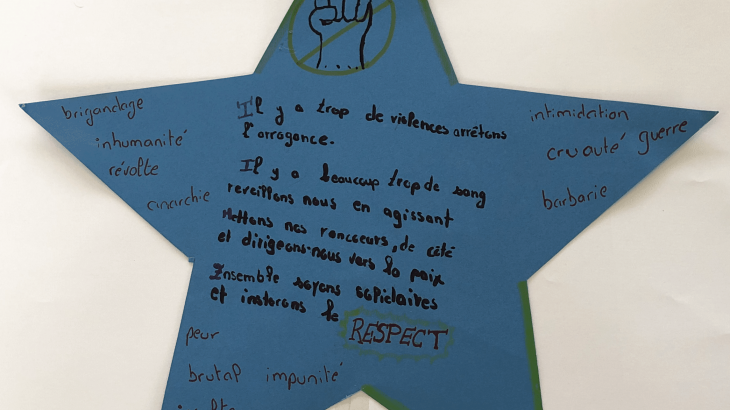 brigandage
inhumanité
révolte
anarchie
Il y a trop de violences arrêtons
l'arrogance.
Il y a beaucoup trop de sang
reveillons nous en agissant
Mettons nos rancoeurs, de côté
et dirigeons-nous vers la paix
Ensemble soyons solidaires
et instorons le RESPECT
intimidation
cruauté guerre
barbarie
peur
brutal impunité